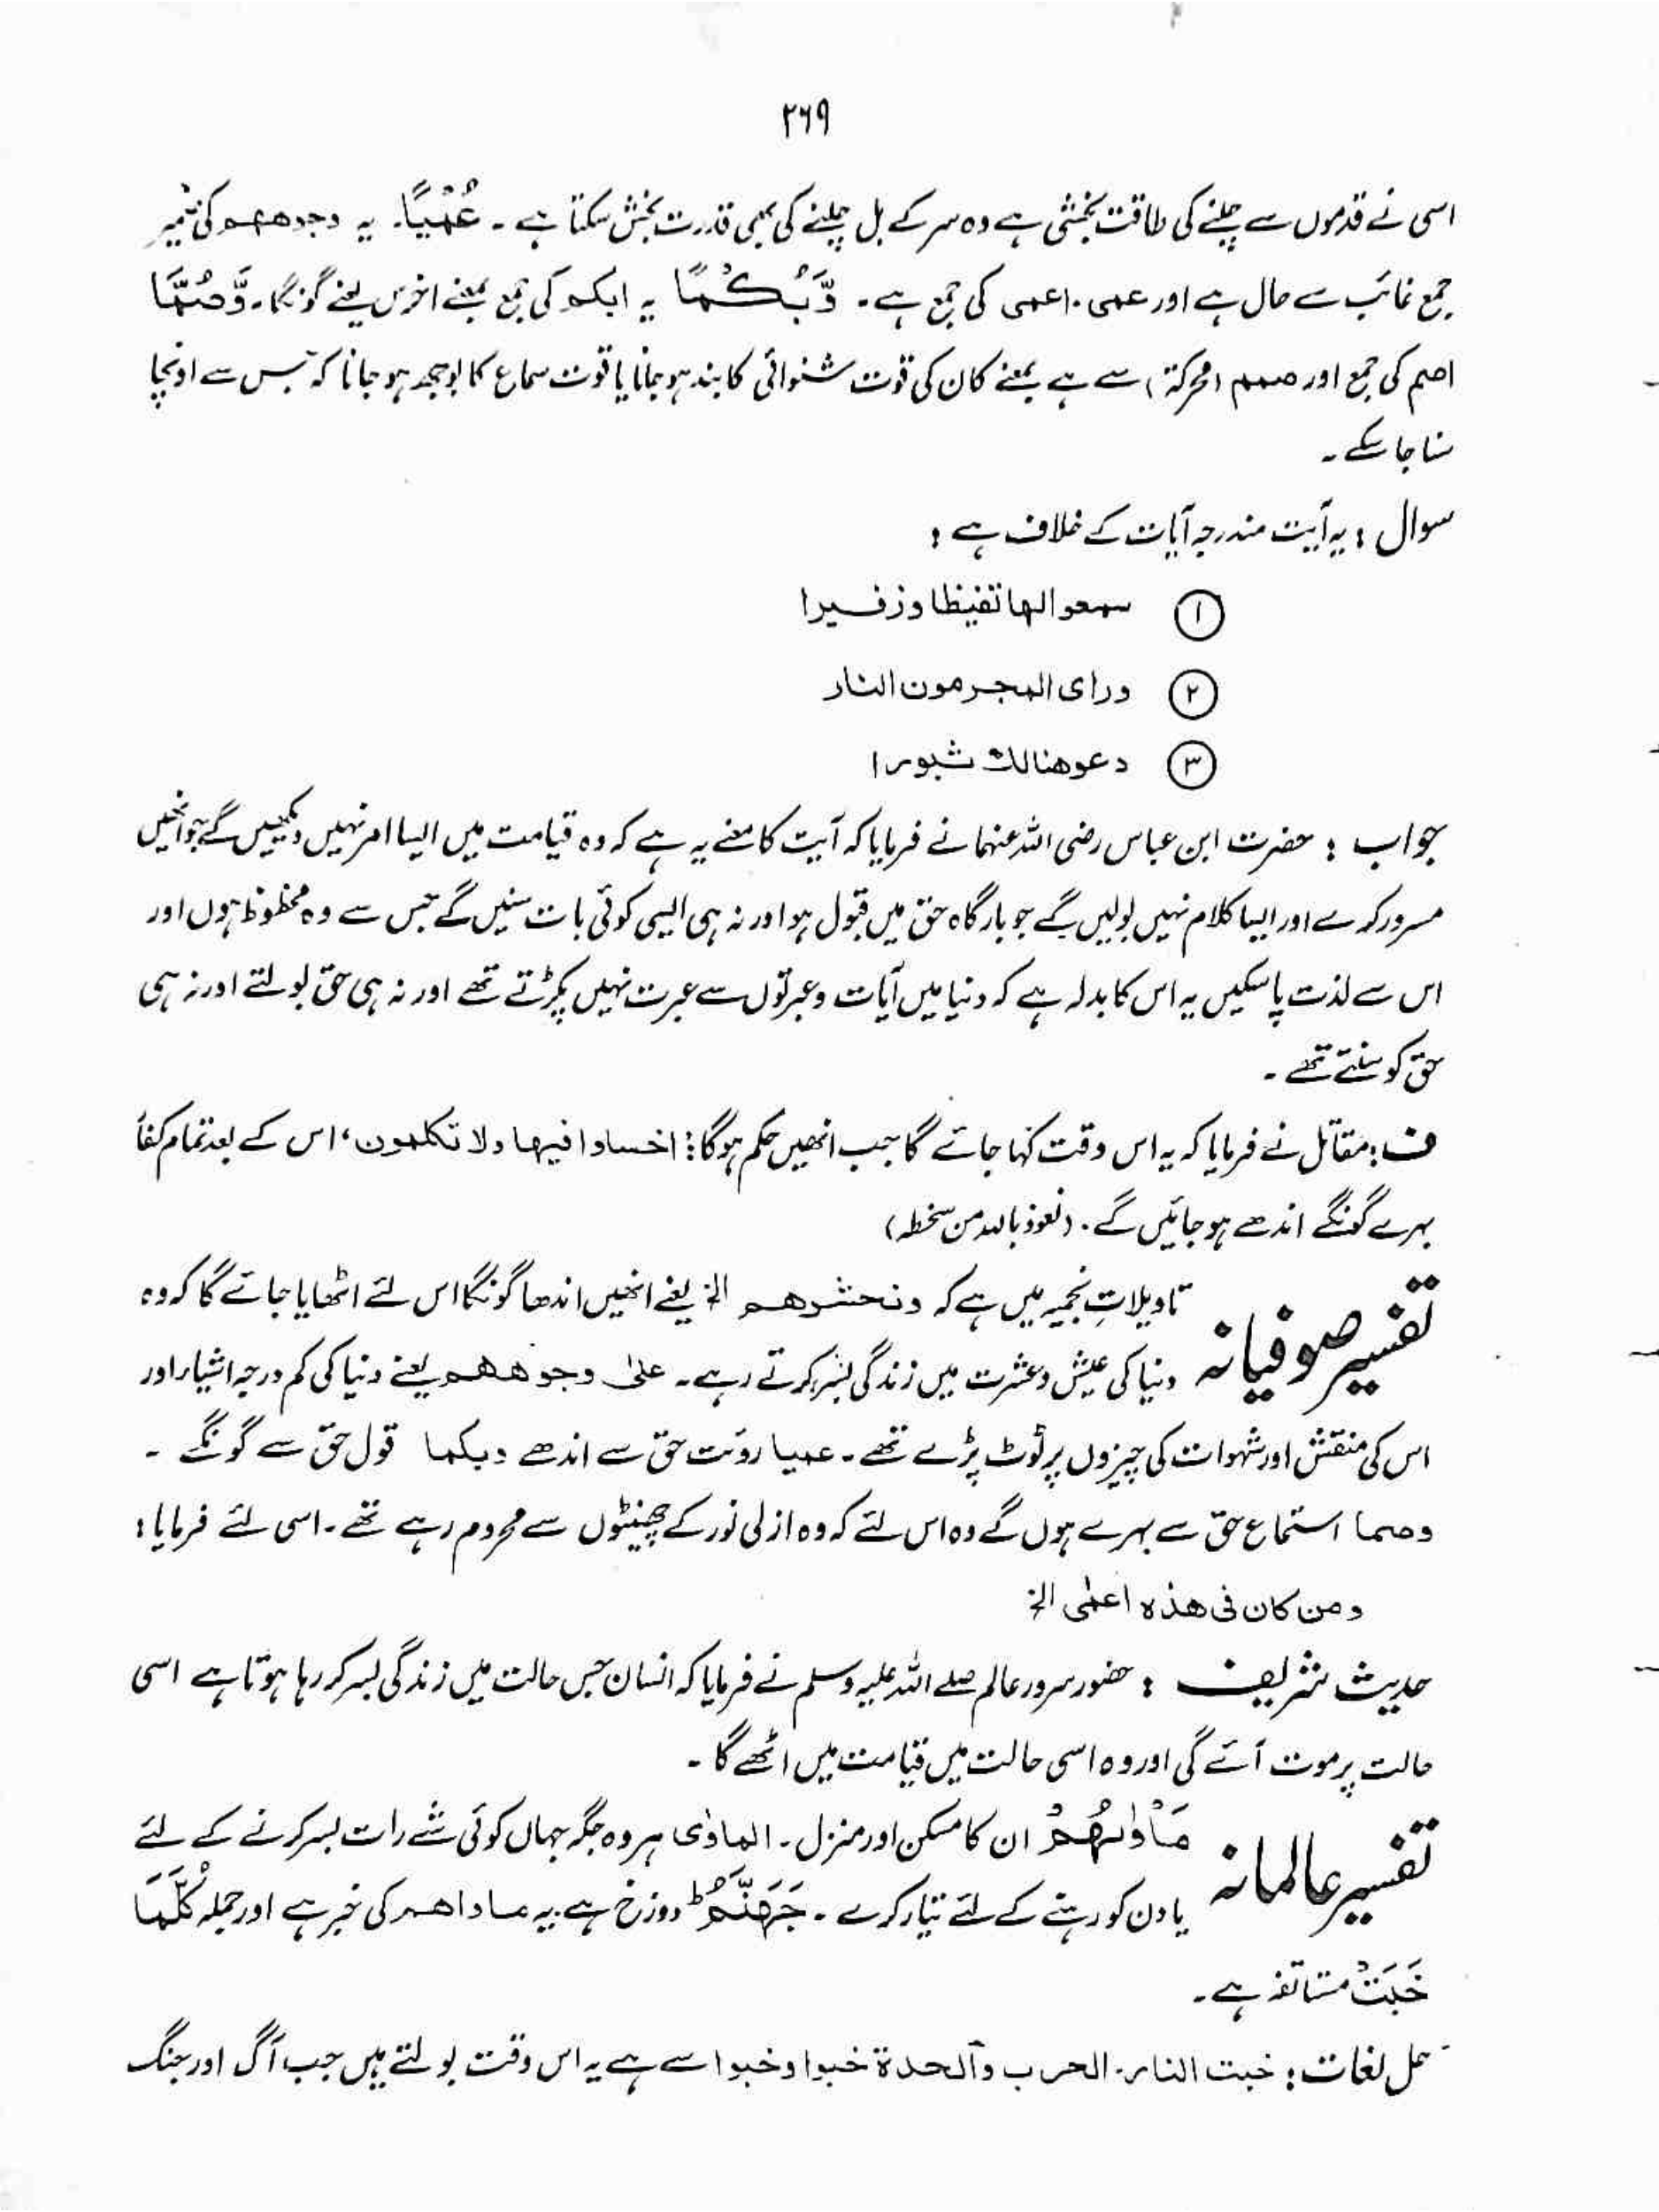 ۲۶۹
اسی نے قدموں سے چلنے کی طاقت بخشی ہے وہ سر کے بل چلنے کی بھی قدرت بخش سکتا ہے ۔ عُمْيًا۔ یہ وجوھھم کی ضمیر
جمع غائب سے حال ہے اور عمی ۔ اعمی کی جمع ہے ۔ وَّبُكْمًا یہ ابکم کی جمع بمعنے اخرس یعنے گونگا ۔ وَّصُمًّا
اصم کی جمع اور صمم (محرکۃ) سے ہے بمعنے کان کی قوت شنوائی کا بند ہو جانا یا قوت سماع کا بوجھ ہو جانا کہ جس سے اونچا
سنا جا سکے ۔
سوال : یہ آیت مندرجہ آیات کے خلاف ہے :
۱ سمعوا لها تغیظا وزفیرا
۲ ورای المجرمون النار
۳ دعوھنالك ثبورا
جواب : حضرت ابن عباس رضی اللہ عنہما نے فرمایا کہ آیت کا معنے یہ ہے کہ وہ قیامت میں ایسا امر نہیں دیکھیں گے جو انھیں
مسرور کرے اور ایسا کلام نہیں بولیں گے جو بارگاہ حق میں قبول ہو اور نہ ہی ایسی کوئی بات سنیں گے جس سے وہ محظوظ ہوں اور
اس سے لذت پا سکیں یہ اس کا بدلہ ہے کہ دنیا میں آیات و عبرتوں سے عبرت نہیں پکڑتے تھے اور نہ ہی حق بولتے اور نہ ہی
حق کو سنتے تھے ۔
ف : مقاتل نے فرمایا کہ یہ اس وقت کہا جائے گا جب انھیں حکم ہوگا : اخساوا فیھا ولا تکلمون ، اس کے بعد تمام کفار
بہرے گونگے اندھے ہو جائیں گے ۔ (نعوذ باللہ من سخطہ)
تفسیر صوفیانہ تاویلاتِ نجمیہ میں ہے کہ ونحشرھم الخ یعنے انھیں اندھا گونگا اس لئے اٹھایا جائے گا کہ وہ
دنیا کی عیش و عشرت میں زندگی بسر کرتے رہے ۔ علیٰ وجوھھم یعنے دنیا کی کم درجہ اشیاء اور
اس کی منقش اور شہوات کی چیزوں پر ٹوٹ پڑے تھے ۔ عمیا روئت حق سے اندھے وبکما قول حق سے گونگے ۔
وصما استماع حق سے بہرے ہوں گے وہ اس لئے کہ وہ ازلی نور کے چھینٹوں سے محروم رہے تھے ۔ اسی لئے فرمایا :
ومن کان فی ھذہ اعمٰی الخ
حدیث شریف : حضور سرور عالم صلے اللہ علیہ وسلم نے فرمایا کہ انسان جس حالت میں زندگی بسر کر رہا ہوتا ہے اسی
حالت پر موت آئے گی اور وہ اسی حالت میں قیامت میں اٹھے گا ۔
تفسیر عالمانہ مَأْوٰىهُمْ ان کا مسکن اور منزل ۔ الماوٰی ہر وہ جگہ جہاں کوئی شے رات بسر کرنے کے لئے
یا دن کو رہنے کے لئے تیار کرے ۔ جَهَنَّمُ ط دوزخ ہے یہ ماواھم کی خبر ہے اور جملہ كُلَّمَا
خَبَتْ مستانفہ ہے ۔
حل لغات : خبت النار ۔ الحرب والحدۃ خبوا وخبوا سے ہے یہ اس وقت بولتے ہیں جب آگ اور جنگ